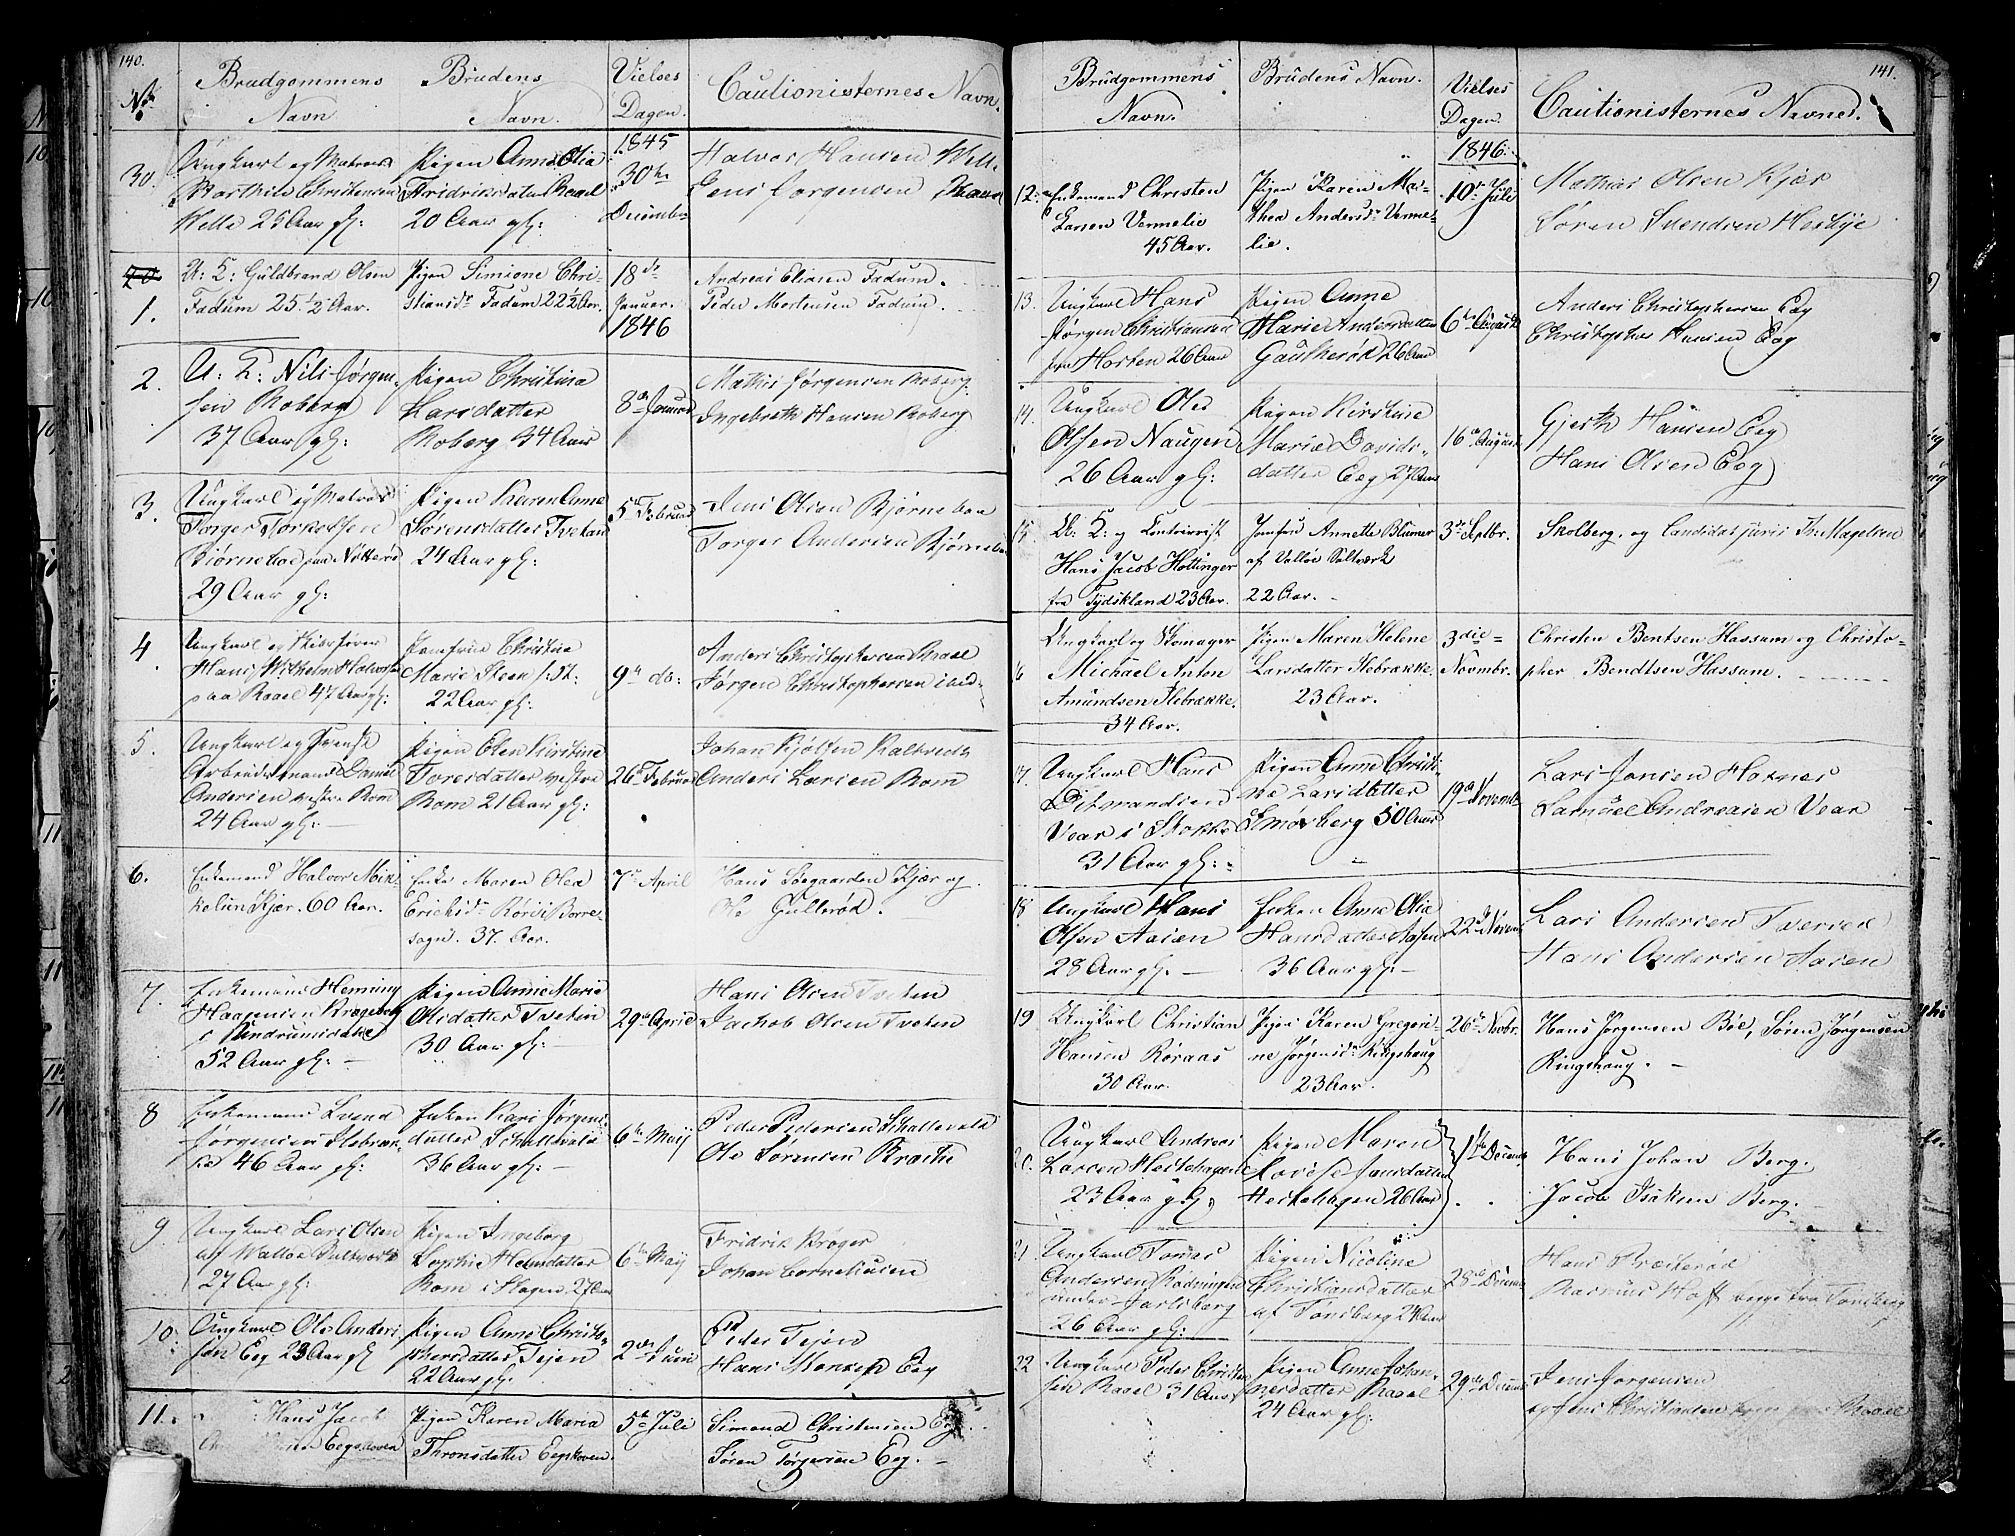 140.
No
Brudgommens Navn
Brudens Navn.
Vielses Dagen.
Cautionisternes Navn.
30.
Ungkarl og Matros
Christensen
Melle 25 Aar gl:
Pigen Anne Olia
Fridriksdatter Raael
20 Aar gl:
1845
30te
December
Halvor Hansen Melle
Jens Jørgensen Raael
1.
U: K: Guldbrand Olsen
Fadum 25 1/2 Aar.
Pigen Simione Chri-
stiansdr Fadum 22 1/2 Aar.
18de
Januar.
1846
Andreas Eliasen Fadum.
Peder Mortensen Fadum.
2.
U: K: Nils Jørgen-
sen Roberg
37 Aar gl:
Pigen Christina
Larsdatter
Roberg 34 Aar
8de Januar
Mathis Jørgensen Roberg.
Ingebreth Hansen Roberg
3.
Ungkarl og Matros
Torger Torkelsen
Bjørneboe paa Nøtterø
29 Aar gl:
Pigen Karen Anne
Sørensdatter Tvetan
24 Aar gl:
5te Februar
Jens Olsen Bjørneboe
Torger Andersen Bjørneboe
4
Ungkarl og
Hans Wilhelm Halvorsen
paa Raael 47 Aar gl:
Jomfrue Christine
Marie Steen
22 Aar gl:
9de do:
Anders Christophersen Raael
Jørgen Christophersen
5.
Ungkarl og Svensk
Arbeidsmand Daniel
Andersen vestre Rom
24 Aar gl: —
Pigen Elen Kirstine
Toresdatter vestre
Rom 21 Aar gl:
26de Februar
Johan
Anders Larsen Rom
6.
Enkemand Halvor Mik-
kelsen Kjær. 60 Aar.
Enke Maren Olea
Ericksdr Rørvi Borre
sogn. 37. Aar.
7de April
Hans Søegaarden Kjær og
Ole Gullerød.
7.
Enkemand Henning
Haagensen
i Andrumsbakke
52 Aar gl: —
Pigen Anne Marie
Olsdatter Tveten
30 Aar gl: —
29de April
Hans Olsen Tveten
Jachob Olsen Tveten
8
Enkemand Svend
Jørgensen Ilebræk-
ke 46 Aar gl:
Enken Kari Jørgens-
datter Schallevald
36 Aar gl: —
6te Maij
Peder Pedersen Schallevald
Ole Sørensen Bræke
9
Ungkarl Lars Olsen
af Valløe Saltværk
27 Aar gl:
Pigen Ingeborg
Sophie Hansdatter
Rom i Hagen 27 Aar
6te Maij
Fridrik Krøger
Johan Cornelíusen
10.
Ungkarl Ole Anders-
sen Eeg 23 Aar gl
Pigen Anne Christo-
phersdatter Tejen
22 Aar gl.
2den Juni
Peder Tejen
Hans Eeg
11.
Hans Jacob
Eegskoven
Pigen Karen Maria
Thronsdatter Eegskoven.
5te Juli
Simend Christensen Eeg.
Søren Tørgersen Eeg. —
141.
Brudgommens Navn.
Brudens Navn.
Vielses Dagen.
Cautionisternes Navne.
1846.
12.
Enkemand Christen
Larsen Vermelie
45 Aar.
Pigen Karen Ma-
thea Andersdr Verme-
lie.
10de Juli
Mathias Olsen Kjær
Søren Svendsen Hesbye
13.
Ungkarl Hans
Jørgen Christiansen
fra Horten 26 Aar
Pigen Anne
Marie Andersdatter
Gautherød 26 Aar
6te August
Anders Christophersen Eeg
Christopher Hansen Eeg
14.
Ungkarl Ole
Olsen Naugen
26 Aar gl:
Pigen Kirstine
Marie Davids-
datter Eeg 27 Aar
16de August
Gjerth Hansen Eeg
Hans Olsen Eeg
15
U: K: og Controirist
Hans Jacob Hottinger
fra Tydskland 23 Aar.
Jomfru Annette Blumer
af Valløe Saltværk
22 Aar. —
3de Septbr.
Skolberg og Candidat juris Th: Magelsen
6
Ungkarl og Skomager
Michael Anton
Amundsen Ilebrække.
34 Aar.
Pigen Maren Helene
Larsdatter Ilebrække.
23 Aar.
3die
Novmbr.
Christen Bentsen Hassum og Christo-
pher Bendtsen Hassum.
17.
Ungkarl Hans
Ditmandsen
Vear i Stokke
31 Aar gl:
Pigen Anne Christi-
ne Larsdatter
Smørberg 30 Aar
19de Novemb
Lars Jensen Hornes
Samuel Andreasen Vear
18
Ungkarl Hans
Olsen Aasen
28 Aar gl. —
Enken Anne Olia
Hansdatter Aasen
36 Aar gl: —
22de Novem
Lars Andersen Tvered
Hans Andersen Aasen
19
Ungkarl Christian
Hansen Røraas
30 Aar.
Pigen Karen Gregori-
ne Jørgensdr Ringshaug
23 Aar.
26de Novbr.
Hans Jørgensen Bøe, Søren Jørgensen
Ringshaug. —
20.
Ungkarl Andreas
Larsen Herkehagen
23 Aar gl,
Pigen Maren
Lovise Jansdatter
Herkehagen 26 Aar
1ste Decemb
Hans Johan Berg.
Jacob Isaksen Berg.
21
Ungkarl Tomas
Andersen Rødningen
under Jarlsberg
26 Aar gl:
Pigen Nicoline
Christiansdatter
af Tønsberg 24 Aar
28de Decemb
Hans Præsterød
Rasmus Hoft fra Tønsberg
22
Ungkarl Peder Christen
sen Raael 31 Aar
Pigen Anne Johan-
nesdatter Raael
24 Aar gl:
29de Decemb
Jens Jørgensen
og Jens Christiansen Raael